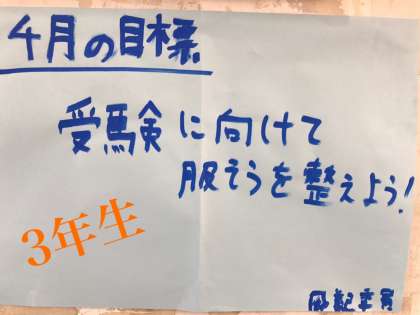 4月の目標
受験に向けて
服そうを整えよう!
3年生
風紀委員